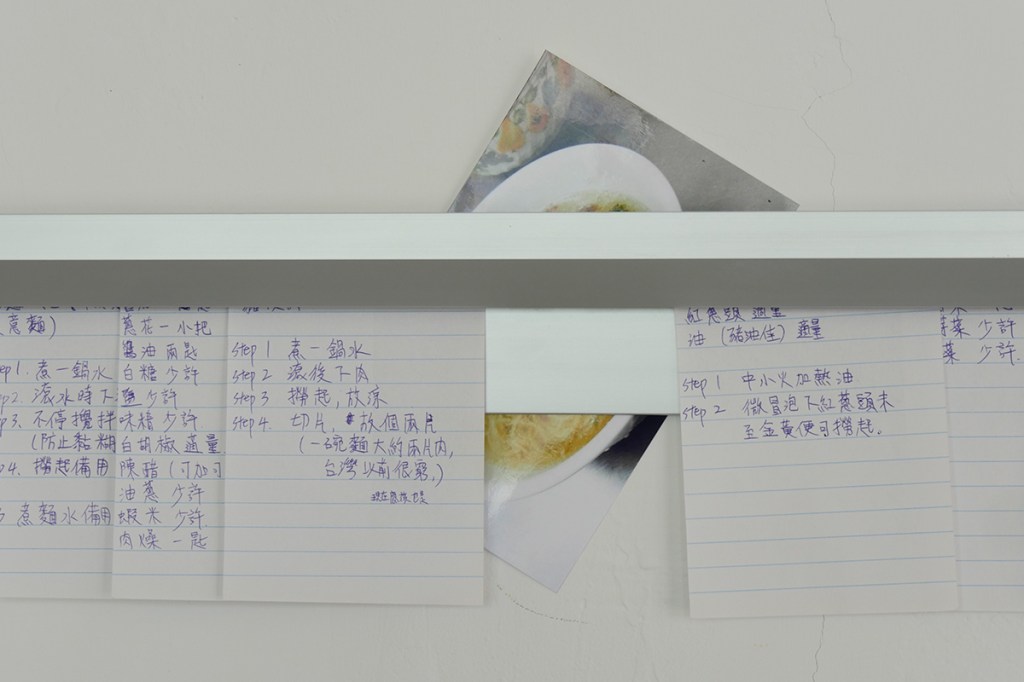 蔥麵)
step1. 煮一鍋水
step2. 滾水時下
step3. 不停攪拌
(防止黏糊
step4. 撈起備用
煮麵水備用
蔥花一小把
醬油兩匙
白糖少許
鹽少許
味精少許
白胡椒適量
陳醋(可加可
油蔥少許
蝦米少許
肉燥一匙
step 1 煮一鍋水
step 2 滾後下肉
step 3 撈起,放涼
step 4. 切片,放個兩片
(一碗麵大約兩片肉,
台灣以前很窮,)
紅蔥頭 適量
油 (豬油佳) 適量
step 1 中小火加熱油
step 2 微冒泡下紅蔥頭末
至金黃便可撈起。
菜 少許
菜 少許.